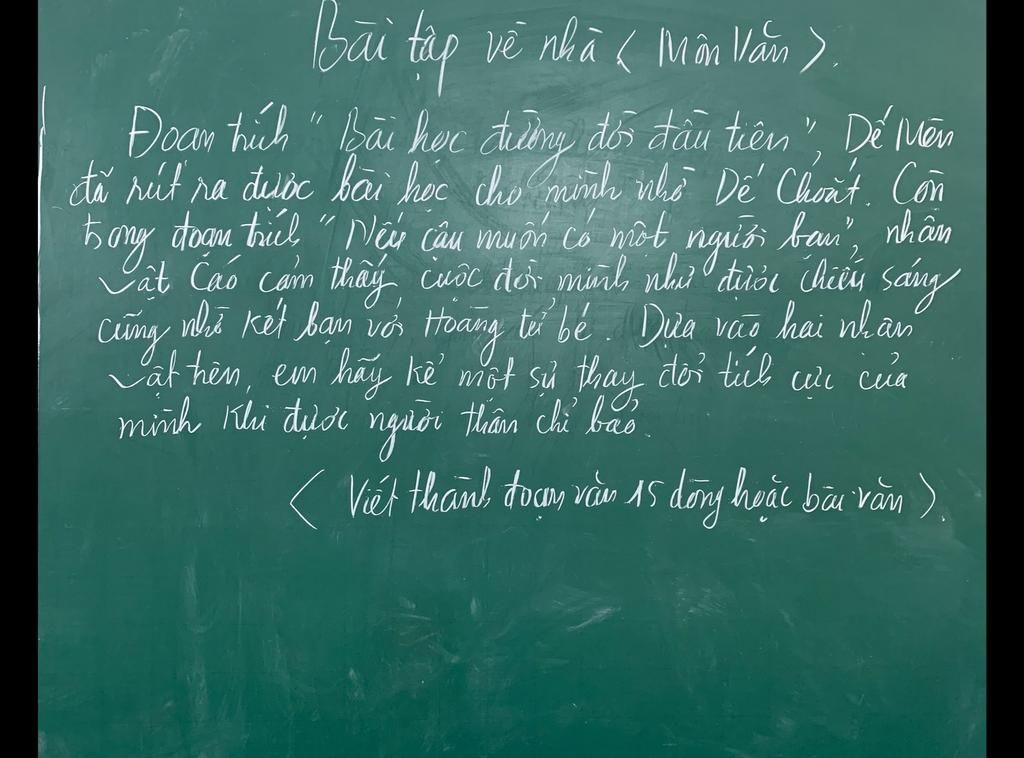 Bài tập về nhà < Môn Văn >.
Đoạn trích " Bài học đường đời đầu tiên", Dế Mèn
đã rút ra được bài học cho mình nhờ Dế Choắt. Còn
trong đoạn trích "Nếu cậu muốn có một người bạn", nhân
vật Cáo cảm thấy cuộc đời mình như được chiếu sáng
cũng nhờ kết bạn với Hoàng tử bé. Dựa vào hai nhân
vật trên, em hãy kể một sự thay đổi tích cực của
mình khi được người thân chỉ bảo.
< Viết thành đoạn văn 15 dòng hoặc bài văn >.